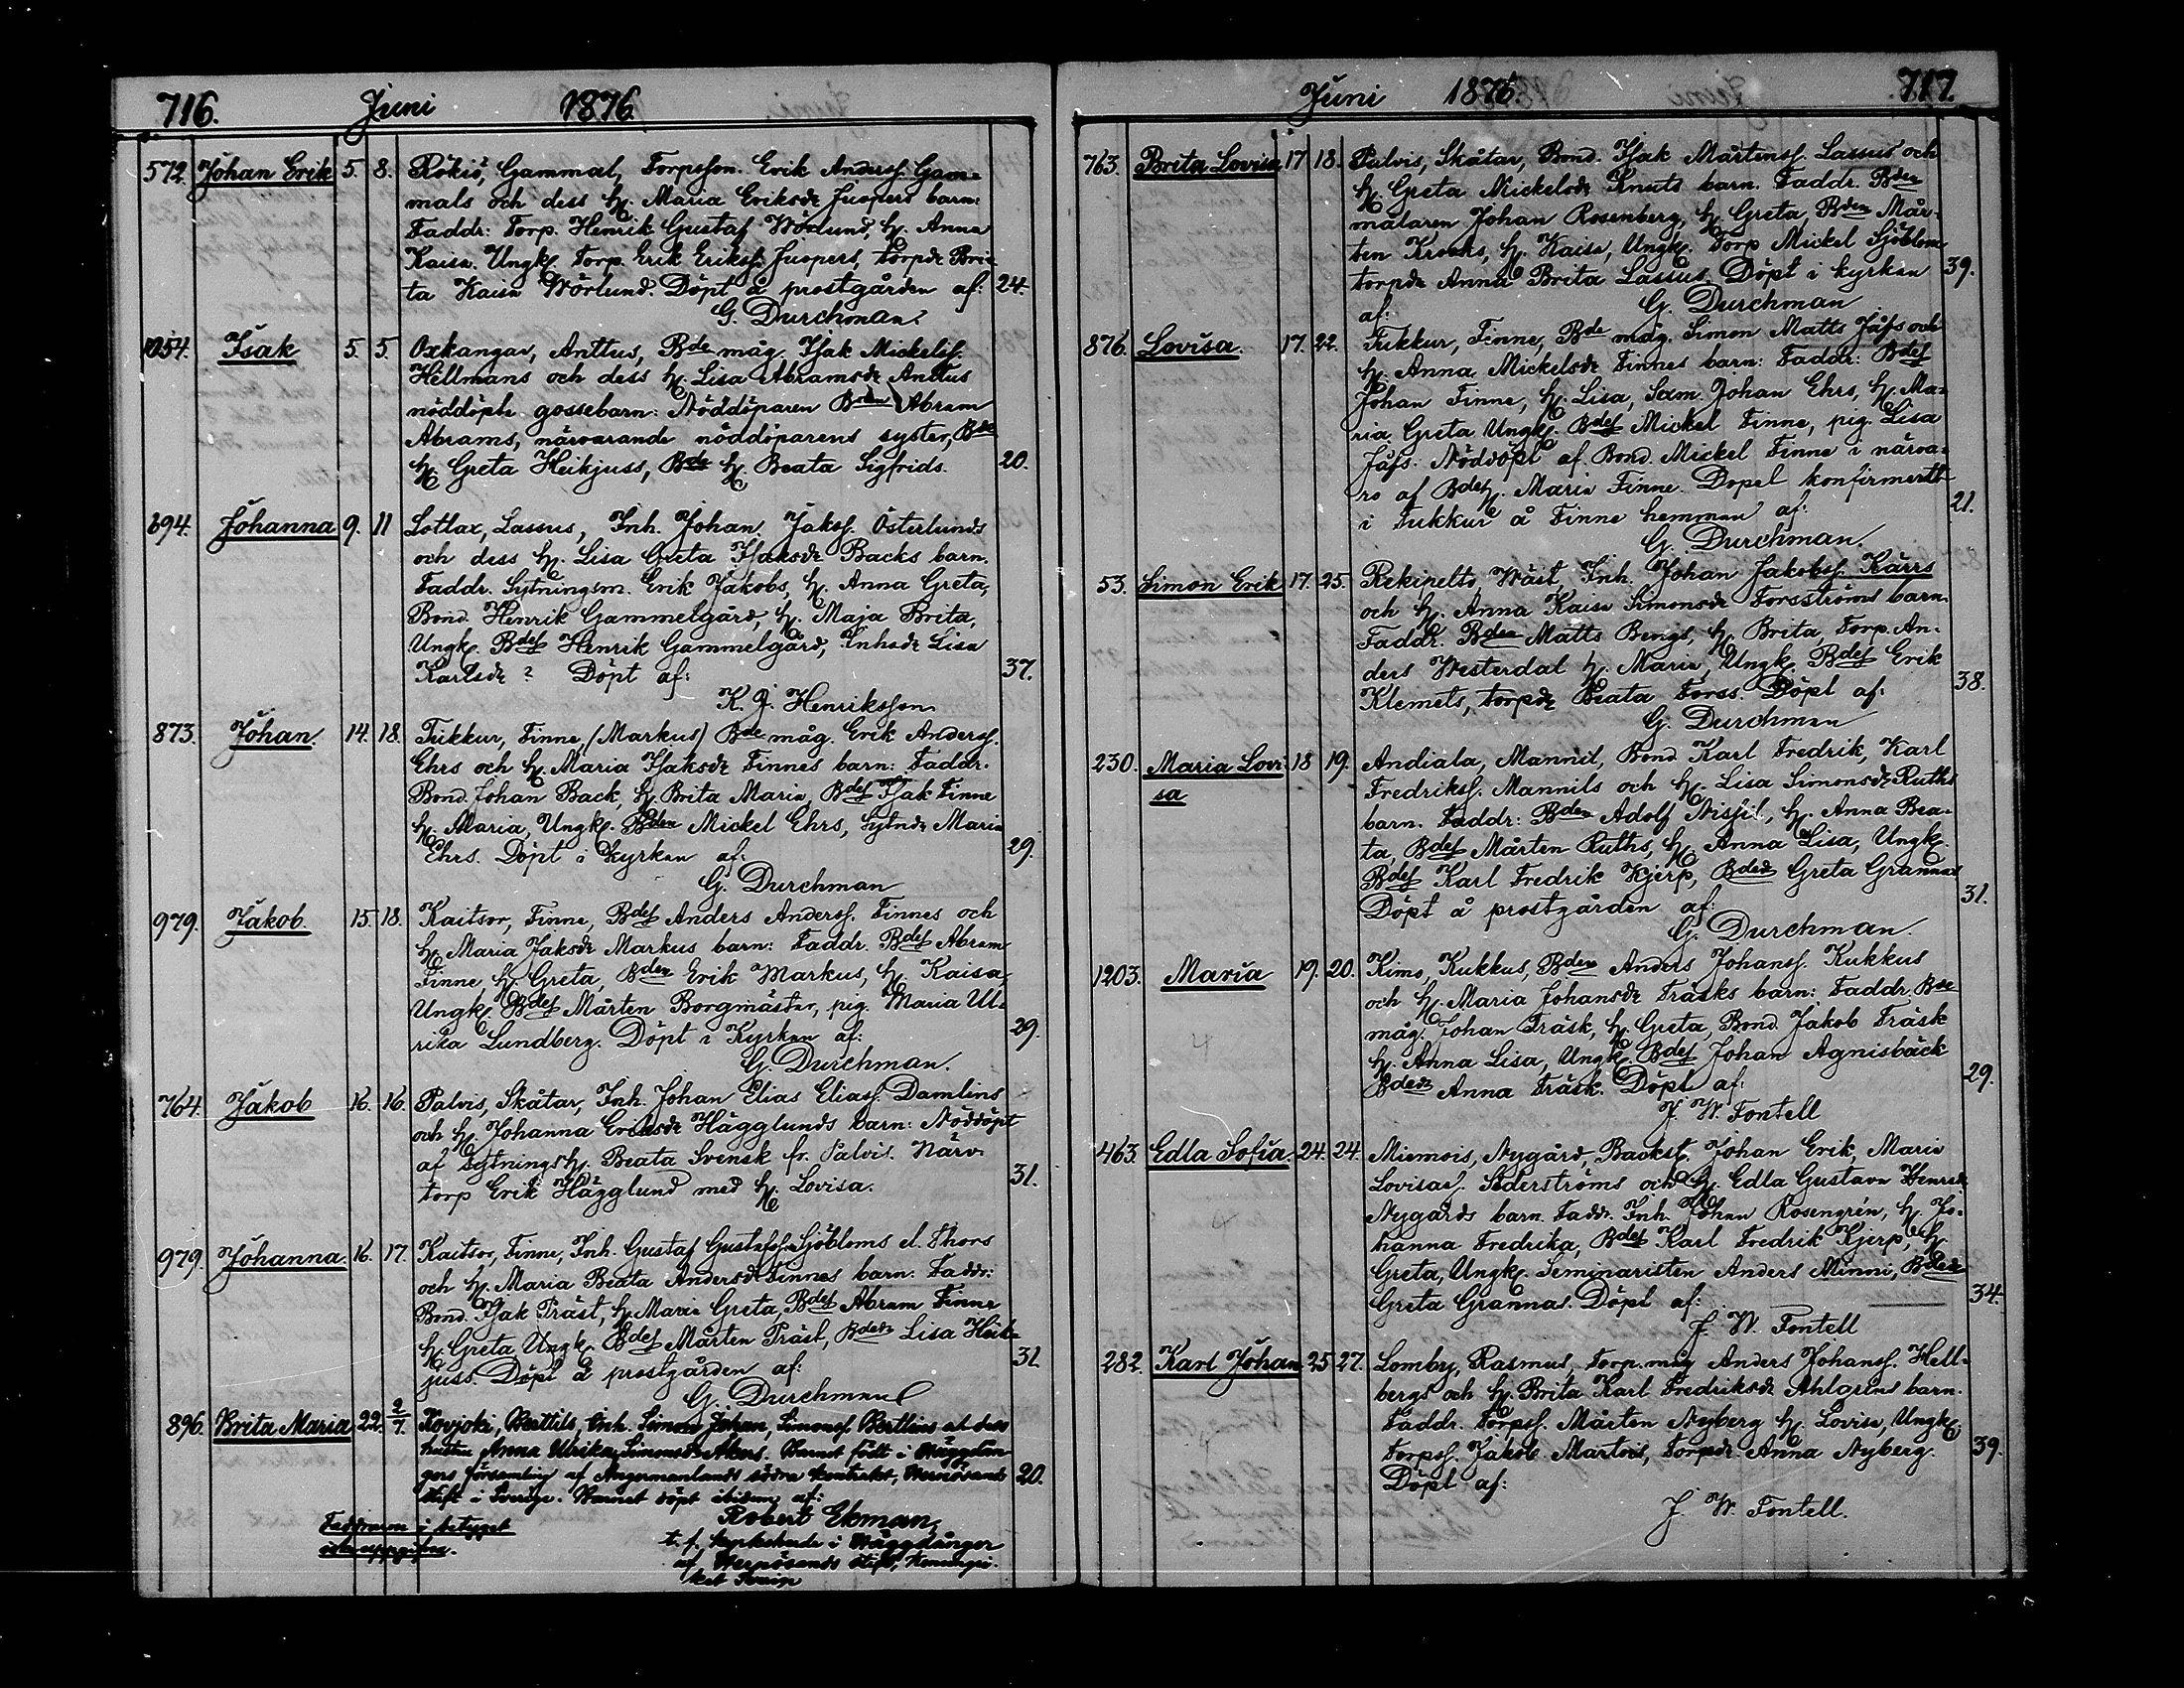 716. Juni 1876.
572. Johan Erik 5. 8. Rökiö, Gammal, Torpsson. Erik Anderss. Gam=
mals och dess h. Maria Eriksdr Juopers barn:
Faddr: Torp. Henrik Gustaf Wörlund, h. Anna
Kaisa. Ungk. Torp. Erik Erikss. Juopers, torpdr Bri=
ta Kaisa Wörlund. Döpt å prostgården af: 24.
G. Durchman.
1054. Isak 5. 5. Oxkangar, Anttus, Bde måg. Isak Mickelss.
Hellmans och dess h. Lisa Abramsdr Anttus
nöddöpte gossebarn: Nöddöparen Bden Abram
Abrams, närvarande nöddöparens syster, Bde
h. Greta Heikjuss, Bde h. Beata Sigfrids. 20.
694. Johanna 9. 11 Lotlax, Lassus, Inh. Johan Jakss. Österlunds
och dess h. Lisa Greta Isaksdr Backs barn.
Faddr. Sytningsm. Erik Jakobs, h. Anna Greta,
Bond. Henrik Gammelgård, h. Maja Brita,
Ungk. Bdes Henrik Gammelgård, Inhsdr Lisa
Karlsdr? Döpt af: 37.
K. J. Henriksson.
873. Johan. 14. 18. Tukkur, Finne, (Markus) Bde måg. Erik Anderss.
Ehrs och h. Maria Isaksdr Finnes barn: Faddr.
Bond. Johan Back, h. Brita Maria, Bdes Isak Finne
h. Maria, Ungk. Bden Mickel Ehrs, Sytndr Maria
Ehrs. Döpt i kyrkan af: 29.
G. Durchman
979. Jakob. 15. 18. Kaitsor, Finne, Bdes Anders Anderss. Finnes och
h. Maria Jaksdr Markus barn: Faddr. Bdes Abram
Finne, h. Greta, Bden Erik Markus, h. Kaisa,
Ungk. Bdes Mårten Borgmäster, pig. Maria Ul=
rika Lundberg. Döpt i Kyrkan af: 29.
G. Durchman.
764. Jakob 16. 16. Palvis, Skåtar, Inh. Johan Elias Eliass. Damlins
och h. Johanna Ericksdr Hägglunds barn: Nöddöpt
af Sytningsh. Beata Svensk fr. Palvis. Närv.
torp Erik Hägglund med h. Lovisa. 31.
979. Johanna. 16. 17. Kaitsor, Finne, Inh. Gustaf Gustafss. Sjöbloms el. Thors
och h. Maria Beata Andersdr Finnes barn. Faddr:
Bond. Isak Präst, h. Maria Greta, Bdes Abram Finne
h. Greta, Ungk. Bdes Mårten Präst, Bdedr Lisa Heik=
juss. Döpt å prostgården af: 31.
G. Durchman
896. Brita Maria 22. 2/7. Kovjoki, Berttils, Inh. Simon Johan, Simonss. Bertlins och dess
hustru Anna Ulrika Simonsdr Akers. Barnet född i Wäggdån
gers församling af Angermanlands södra kontrakt, Hernösands 20.
stift i Sverige. Barnet döpt ibidem af:
Robert Ekman,
t. f. kyrkoherde i Wäggdånger
af Hernösands stift, Konungri-
ket Sverige
Faddrarne i betyget
icke uppgifna.
Juni 1876. 717.
763. Brita Lovisa 17 18. Palvis, Skåtar, Bond. Isak Mårtenss. Lassus och
h. Greta Mickelsdr Knuts barn. Faddr. Bden
målaren Johan Rosenberg, h. Greta, Bden Mår-
ten Krooks, h. Kaisa, Ungk. Torp Mickel Sjöblom,
torpdr Anna Brita Lassus. Döpt i kyrkan 39.
af: G. Durchman
876. Lovisa. 17. 22. Tukkur, Finne, Bde måg. Simon Matts Jåfs och
h. Anna Mickelsdr Finnes barn: Faddr: Bdes
Johan Finne, h. Lisa, Sam. Johan Ehrs, h. Ma=
ria Greta Ungk. Bdes Mickel Finne, pig. Lisa
Jåfs. Nöddöpt af. Bond. Mickel Finne i närva=
ro af Bdeh. Maria Finne. Dopet konfirmeradt
i Tukkur å Finne hemman af: 21.
G. Durchman.
53. Simon Erik 17. 25. Rekipelto Wäst, Inh. Johan Jakobss. Kärrs
och h. Anna Kaisa Simonsdr Forsströms barn.
Faddr. Bden Matts Bengs, h. Brita, Torp. An-
ders Westerdal h. Maria, Ungk. Bdes Erik
Klemets, torpdr Beata Forss. Döpt af: 38.
G. Durchman
230. Maria Lovi: 18 19. Andiala, Mannil, Bond Karl Fredrik, Karl
sa Fredrikss. Mannils och h. Lisa Simonsdr Ruths
barn. Faddr: Bden Adolf Nissil, h. Anna Bea-
ta, Bdes Mårten Ruths, h. Anna Lisa, Ungk.
Bdes Karl Fredrik Kjerp, Bdedr Greta Grannas
Döpt å prostgården af: 31.
G. Durchman.
1203. Maria 19. 20. Kimo, Kukkus, Bden Anders Johanss. Kukkus
och h. Maria Johansdr Träsks barn: Faddr. Bde
måg. Johan Träsk, h. Greta, Bond. Jakob Träsk
h. Anna Lisa, Ungk. Bdes Johan Agnisbäck
Bdedr Anna Träsk. Döpt af: 29.
J. W. Fontell
463. Edla Sofia. 24. 24. Miemois, Nygård, Backst. Johan Erik, Maria
Lovisas. Söderströms och h. Edla Gustava Henrdr
Nygårds barn. Faddr. Inh. Johan Rosengrén, h. Jo=
hanna Fredrika, Bdes Karl Fredrik Kjerp, h.
Greta, Ungk. Seminaristen Anders Minni, Bdedr
Greta Grannas. Döpt af: 34.
J. W. Fontell
282. Karl Johan 25 27. Lomby, Rasmus, Torp. måg Anders Johanss. Hell=
bergs och h. Brita Karl Fredriksdr Ahlgrens barn.
Faddr. Torpss. Mårten Nyberg h. Lovisa, Ungk.
Torpss. Jakob Martois, Torpdr Anna Nyberg. 39.
Döpt af:
J. W. Fontell.